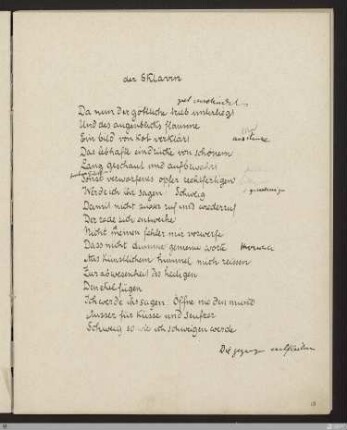 der Sklavin
Da nun der göttliche trieb unterliegt
Und des augenblicks flamme
Ein bild von kot verklärt
Das lebhafte eindrücke von schönem
Lang geschaut und aufbewahrt
Sonst verworfenes opfer rechtfertigen
Werde ich ihr sagen Schweig
Damit nicht ruf und wiederruf
Der rede sich entwerte
Nicht meinen fehler mir vorwerfe
Dass nicht gemeine worte
Aus künstlichem himmel mich reissen
Zur abwesenheit des heiligen
Den ekel fügen
Ich werde ihr sagen Öffne nie den mund
Ausser für küsse und seufzer
Schweig so wie ich schweigen werde